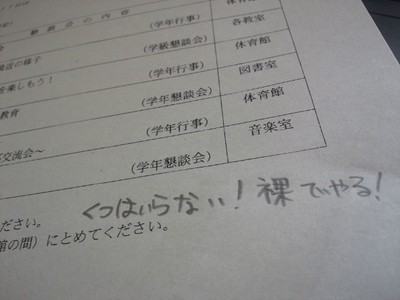 懇談会の内容
(学年行事)
各教室
業の様子
(学級懇談会)
体育館
を楽しもう！
(学年行事)
図書室
教育
(学年懇談会)
体育館
(学年行事)
音楽室
交流会～
(学年懇談会)
くつはいらない！裸でやる！
ださい。
館の間）にとめてください。